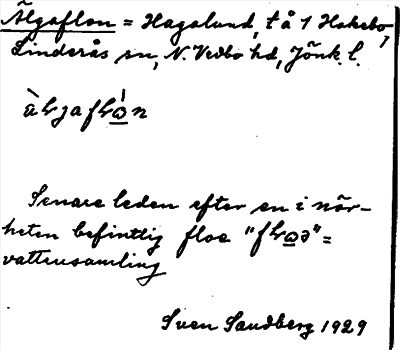 Älgaflon = Hagalund, t å 1 Hakebo,
Linderås sn, N. Vedbo hd, Jönk. l.
Senare leden efter en i när-
heten befintlig floe "fɫωə" =
vattensamling
Sven Sandberg 1929